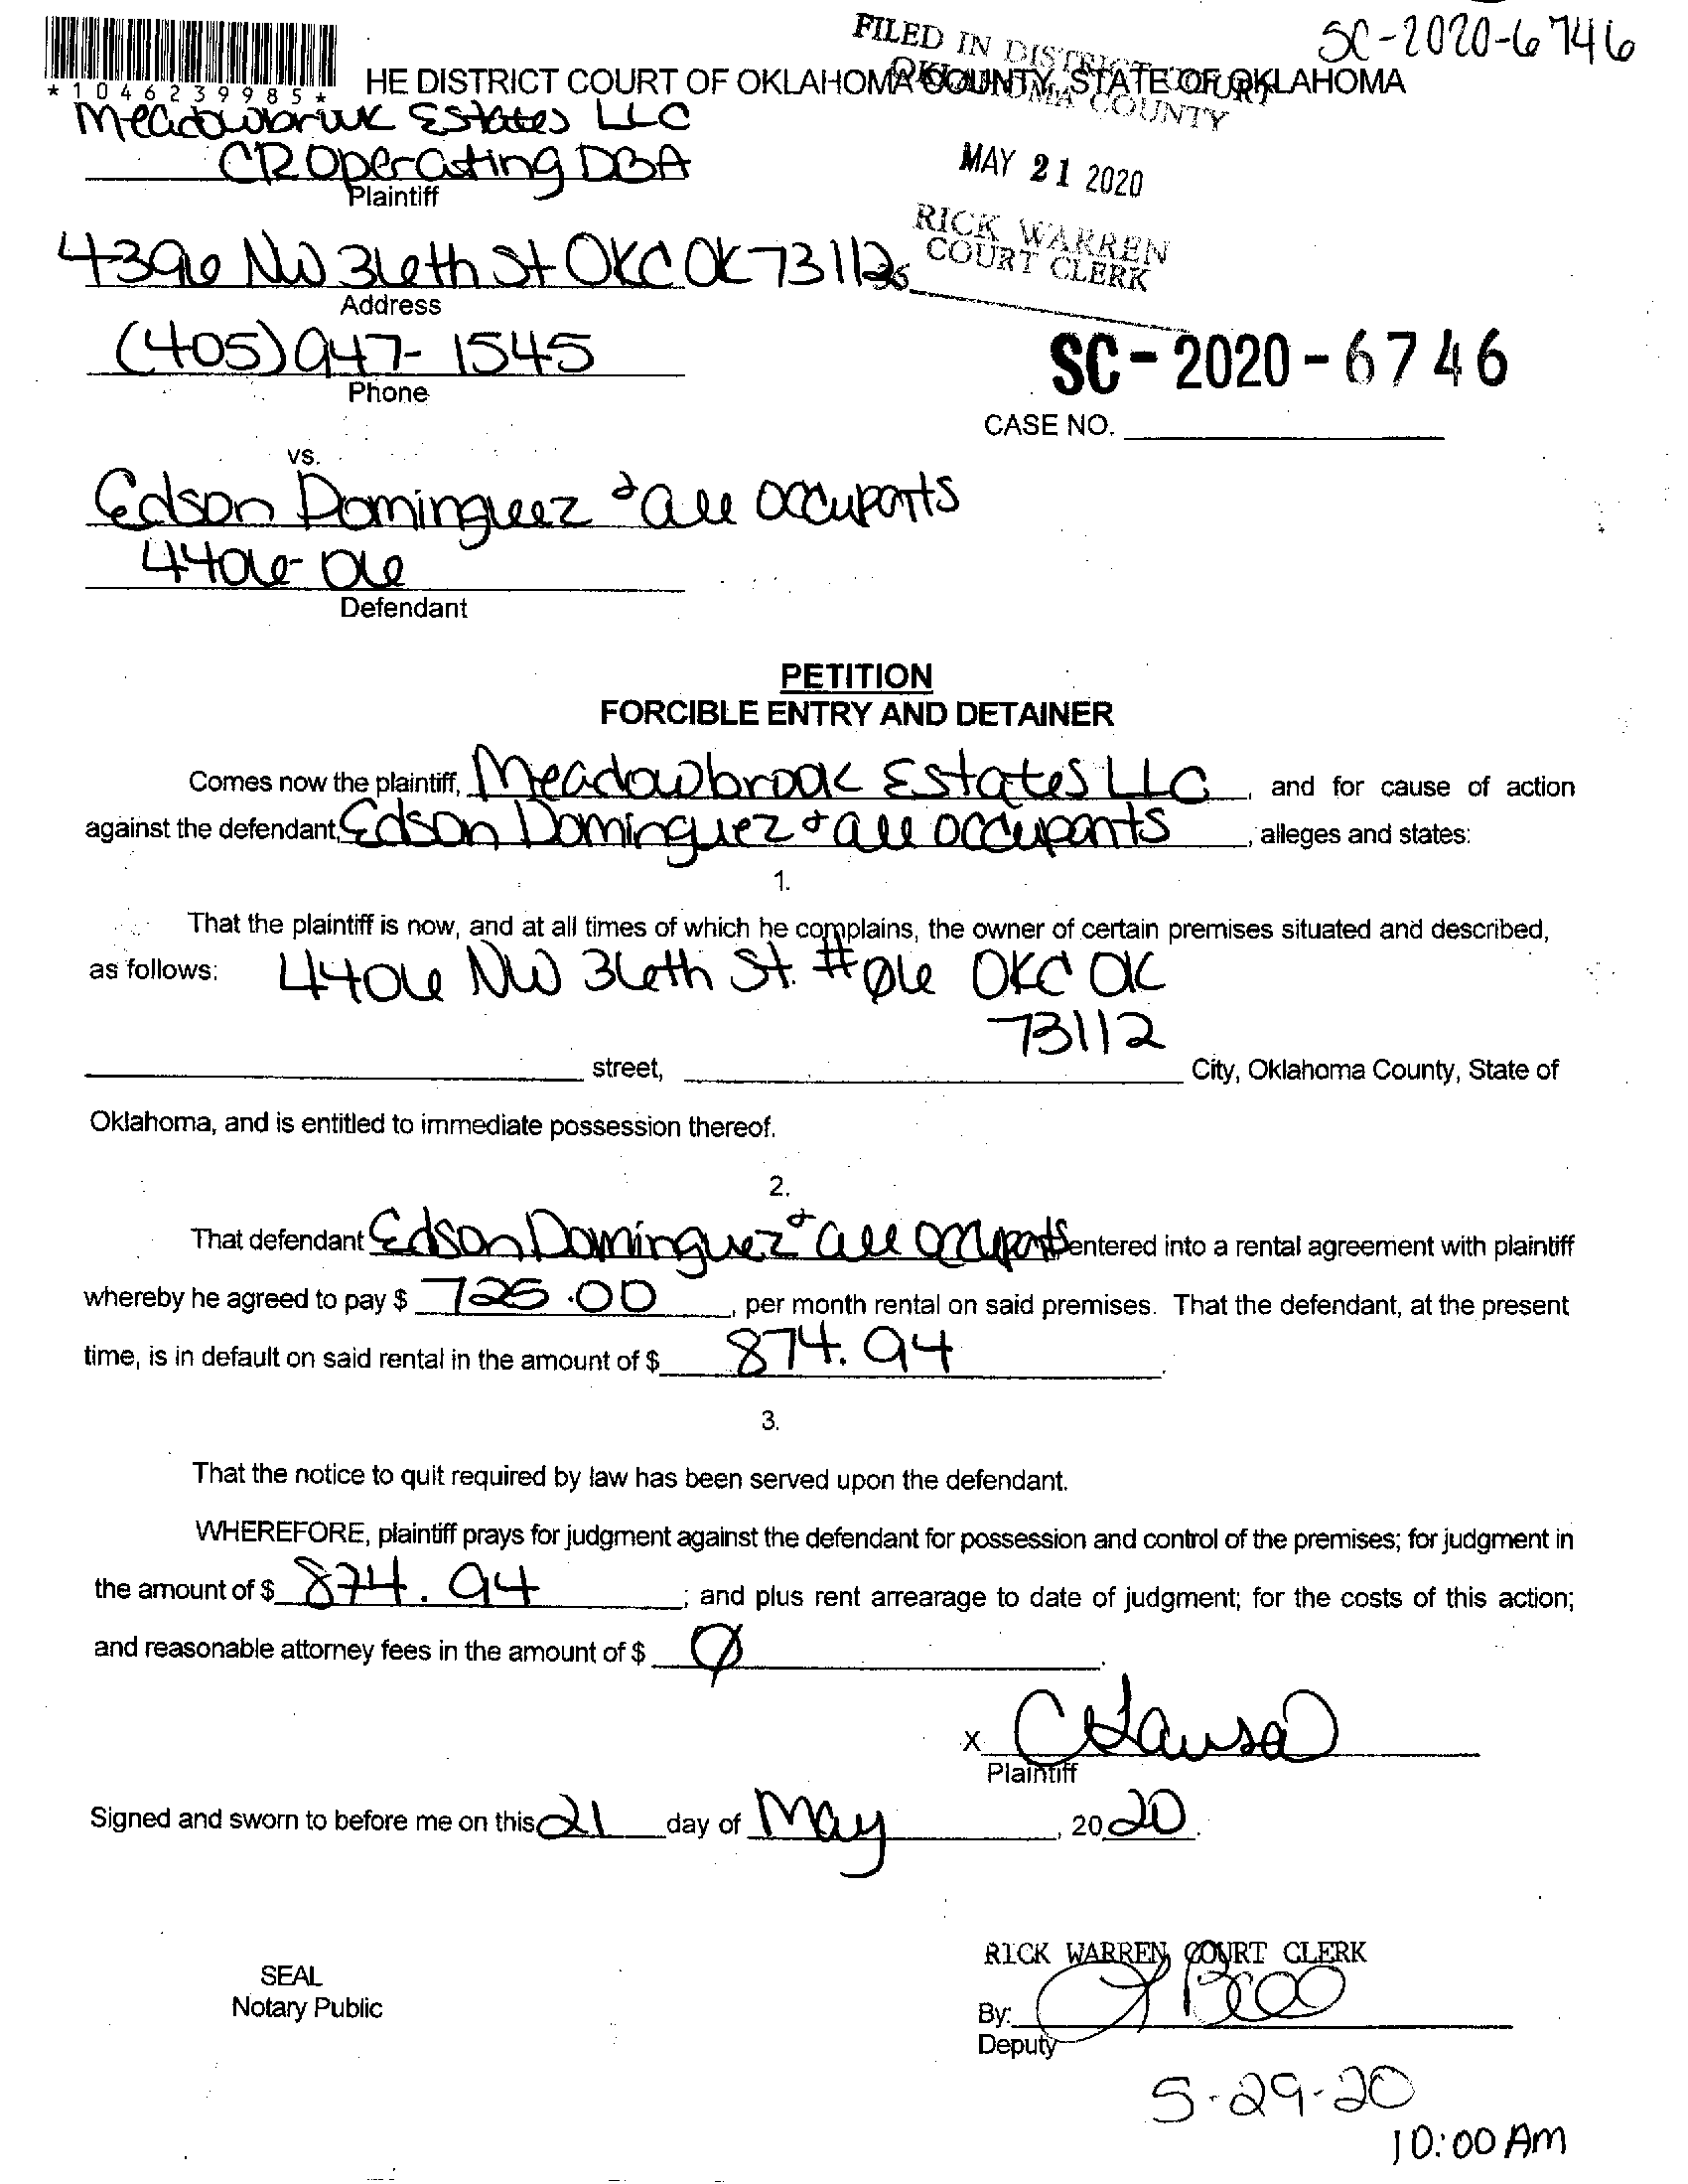 SC-2020-6746
FILED IN DISTRICT COURT
OKLAHOMA COUNTY
*1046239985*
HE DISTRICT COURT OF OKLAHOMA COUNTY, STATE OF OKLAHOMA
Meadowbrook Estates LLC
CR Operating DBA
Plaintiff
MAY 21 2020
RICK WARREN
COURT CLERK
4396 NW 36th St OKC OK 73112
Address
(405) 947-1545
Phone
SC-2020-6746
CASE NO.
vs.
Edson Dominguez & all occupants
4406-06
Defendant
PETITION
FORCIBLE ENTRY AND DETAINER
Comes now the plaintiff, Meadowbrook Estates LLC, and for cause of action
against the defendant, Edson Dominguez & all occupants, alleges and states:
1.
That the plaintiff is now, and at all times of which he complains, the owner of certain premises situated and described,
as follows: 4406 NW 36th St. #06 OKC OK
73112
street, City, Oklahoma County, State of
Oklahoma, and is entitled to immediate possession thereof.
2.
That defendant Edson Dominguez & all occupants entered into a rental agreement with plaintiff
whereby he agreed to pay $ 725.00, per month rental on said premises. That the defendant, at the present
time, is in default on said rental in the amount of $ 874.94.
3.
That the notice to quit required by law has been served upon the defendant.
WHEREFORE, plaintiff prays for judgment against the defendant for possession and control of the premises; for judgment in
the amount of $ 874.94; and plus rent arrearage to date of judgment; for the costs of this action;
and reasonable attorney fees in the amount of $ Ø.
X
Plaintiff
Signed and sworn to before me on this 21 day of May, 2020.
RICK WARREN, COURT CLERK
SEAL
Notary Public
By:
Deputy
5-29-20
10:00 AM